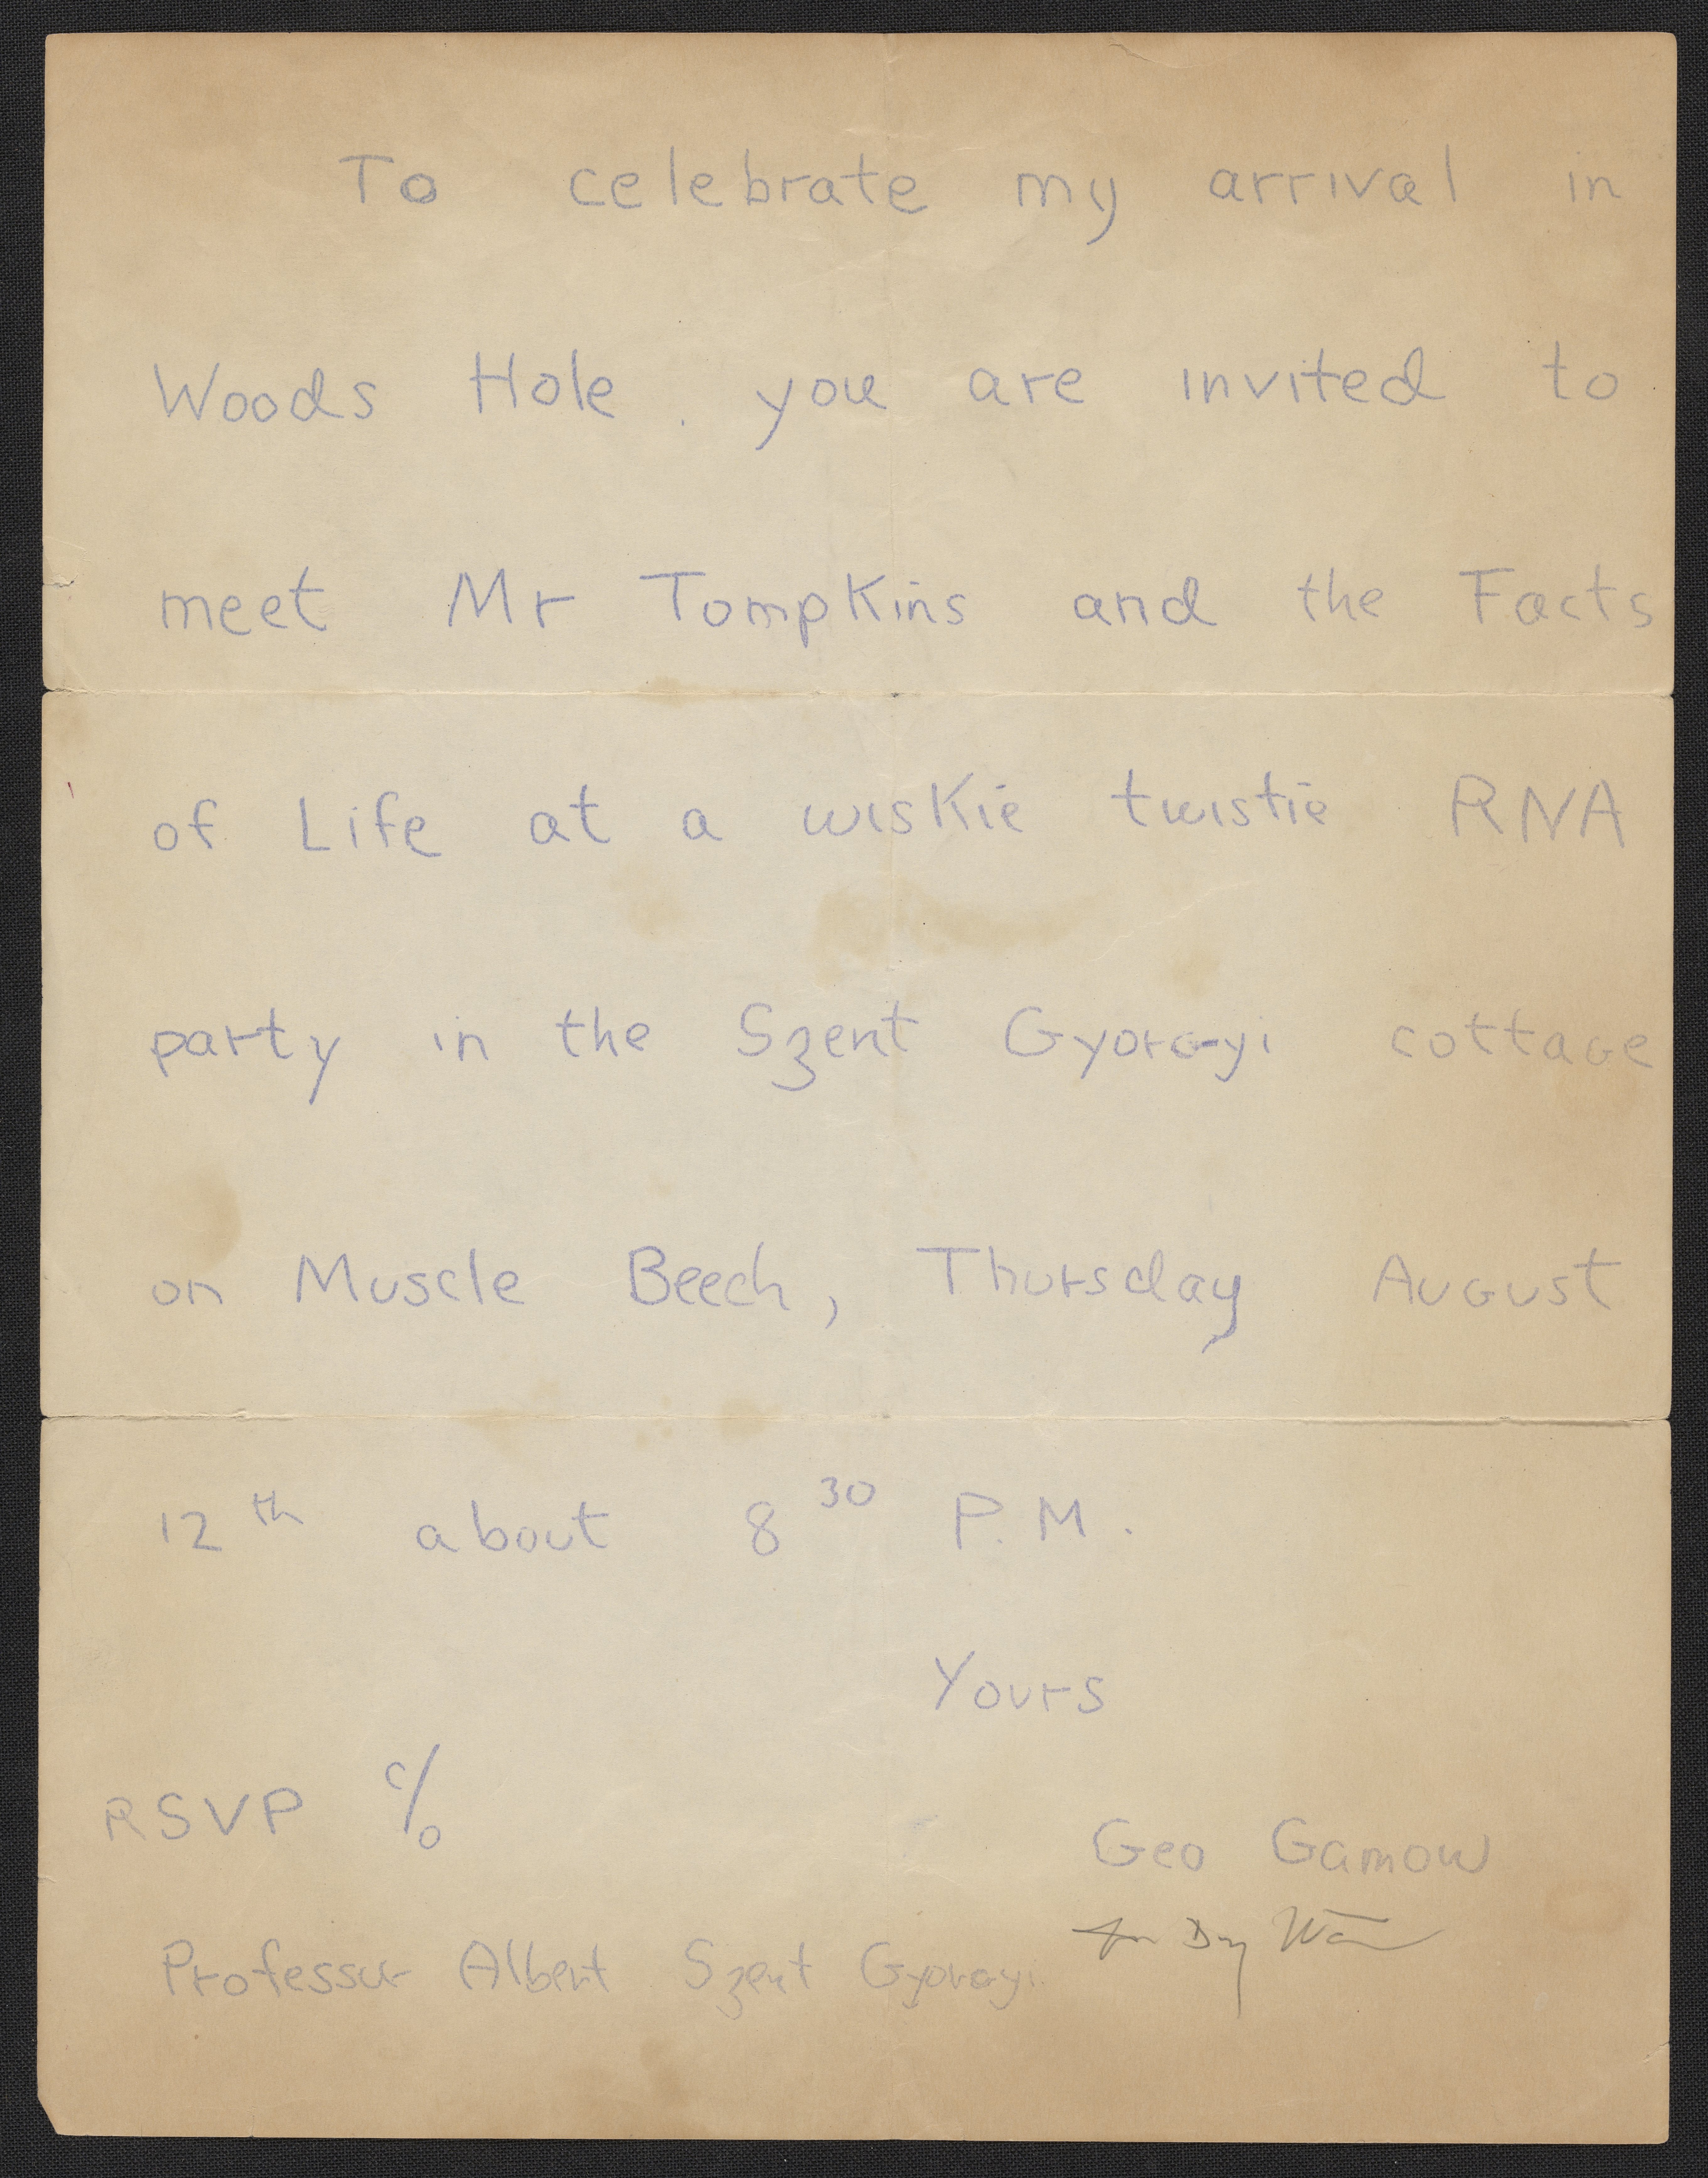 To celebrate my arrival in
Woods Hole . you are invited to
meet Mr Tompkins and the Facts
of Life at a wiskie twistie RNA
party in the Szent Gyorgyi cottage
on Muscle Beech, Thursday August
12th about 8 30 P.M.
Yours
RSVP c/o
Geo Gamow
Professor Albert Szent Gyorgyi